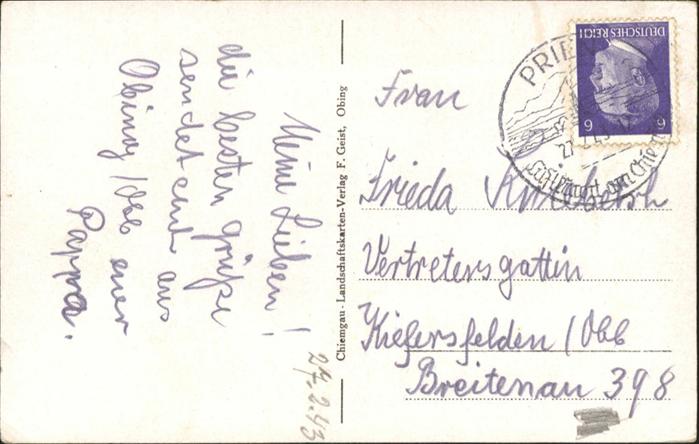 Meine Lieben!
die besten grüße
sendet euch aus
Obing/Obb euer
Pappa.
27.2.43
Chiemgau-Landschaftskarten-Verlag F. Geist, Obing
DEUTSCHES REICH
6 6
PRIEN
27.2.43
Luftkurort am Chiemsee
Frau
Frieda
Vertretersgattin
Kiefersfelden/Obb
Breitenau 398